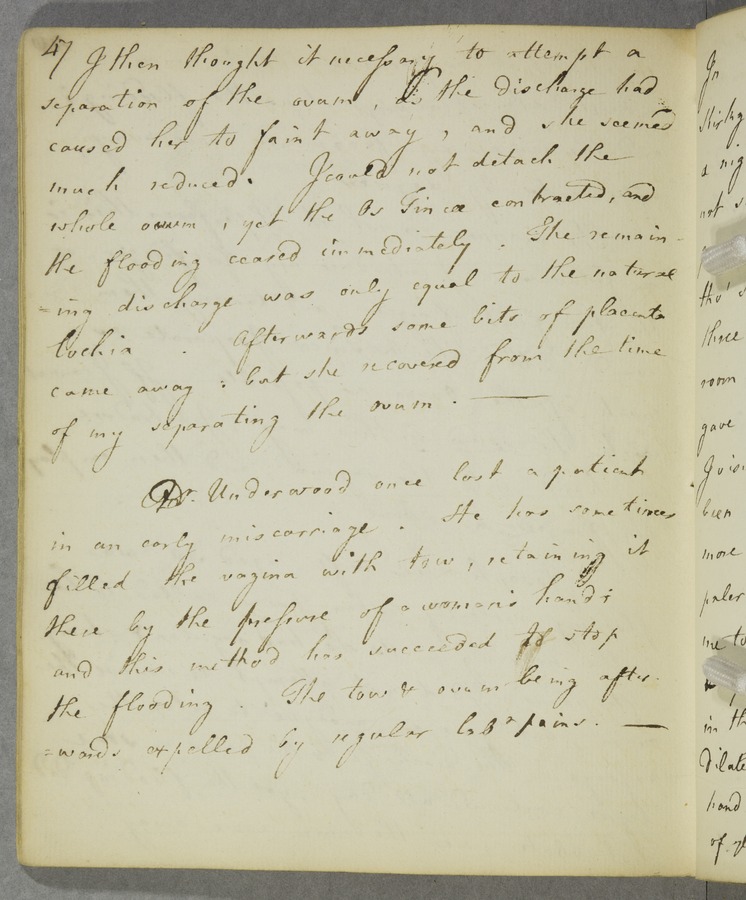 47 I then thought it necessary to attempt a
separation of the ovum, as the discharge had
caused her to faint away, and she seemed
much reduced. I could not detach the
whole ovum, yet the Os Tincæ contracted, and
the flooding ceased immediately. The remain-
=ing discharge was only equal to the natural
lochia. Afterwards some bits of placenta
came away: but she recovered from the time
of my separating the ovum. —
Dr. Underwood once lost a patient
in an early miscarriage. He has sometimes
filled the vagina with tow, retaining it
there by the pressure of a woman's hand;
and this method has succeeded to stop
the flooding. The tow & ovum being after-
=wards expelled by regular labr pains. —
In
a nig
not s
tho' s
three
room
gave
been
more
paler
me to
in th
dilate
hand
of